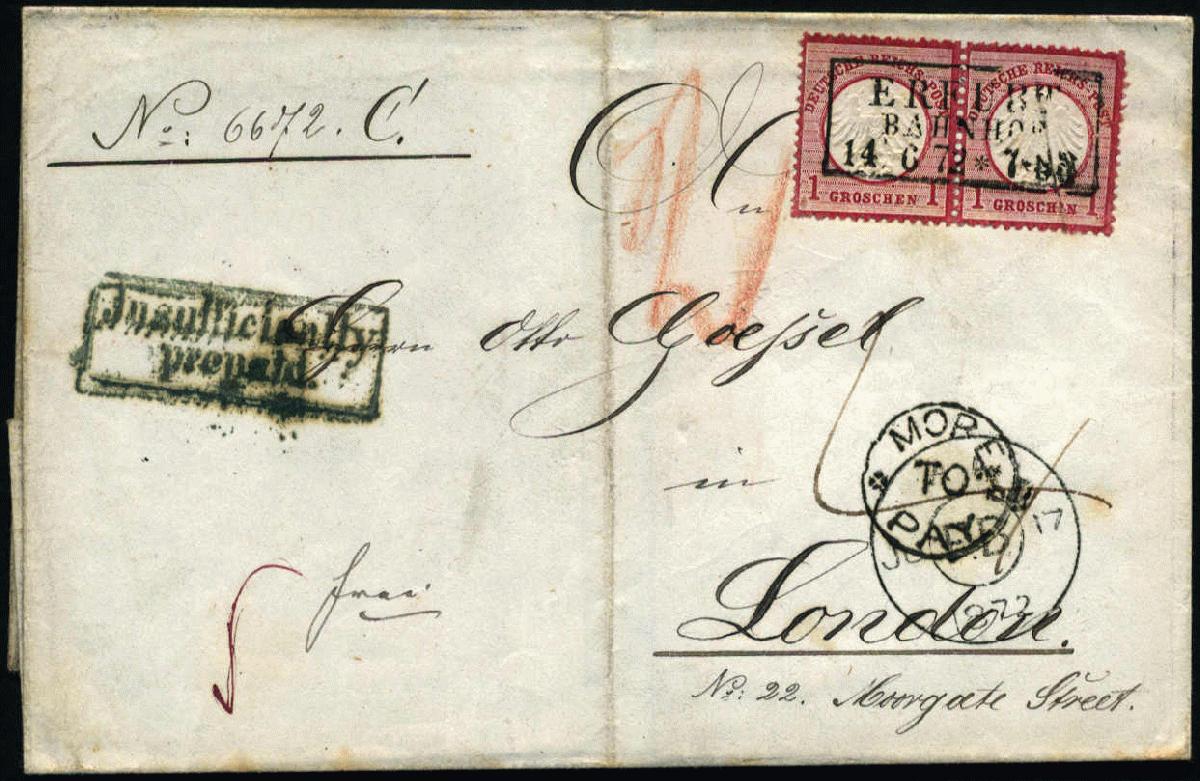 No: 6672. C.
An
DEUTSCHE REICHS-POST
1 GROSCHEN 1
DEUTSCHE REICHS-POST
1 GROSCHEN 1
ERFURT
BAHNHOF
14 6 72 * 7-8N
Insufficiently
prepaid.
Herrn Otto Goeſsel
in
MORE
TO
PAY
17
72
frei
London.
No: 22. Moorgate Street.